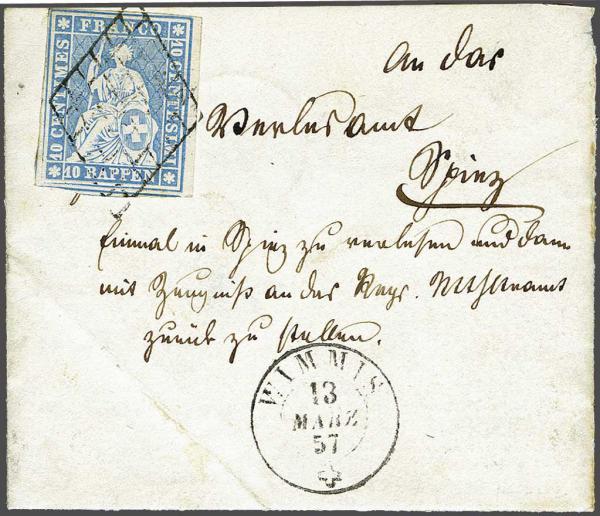 FRANCO
10 CENTIMES
10 CENTESIMI
10 RAPPEN
An das
Verlesamt
Spiez
Einmal in Spiez zu verlesen und dann
mit Zeugniß an das Regr. Amt
zurück zu stellen.
WIMMIS
13
MARZ
57